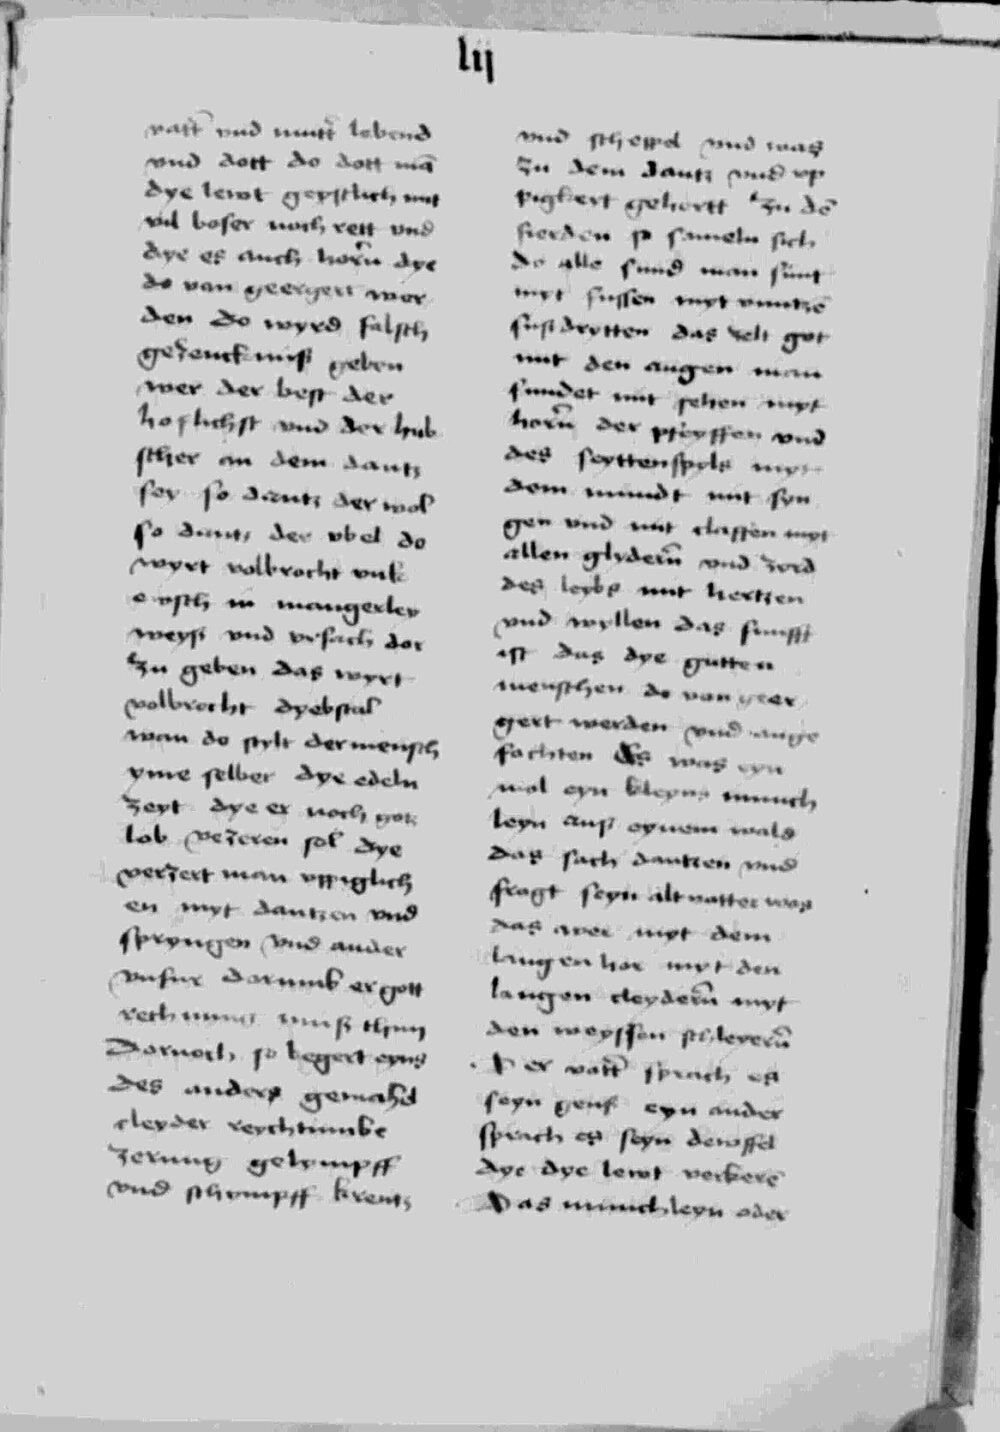 lij
vatt̄ vnd mutt̄ lebend
vnd dott do dott mā
dye lewt geystlich mit
vil boser noch rett vnd
dye es auch horn̄ dye
do van geergert wer
den do wyrd falsch
gezeucknuß geben
wer der best der
hoflichst vnd der hub
scher an dem dantz
sey so dantz der wol
so dantz der vbel do
wyrt volbrocht vnk
eusch in mangerley
weyß vnd vrsach dor
zu geben das wyrt
volbrocht dyebstal
wan do stylt der mensch
yme selber dye edeln
zeyt dye er noch gotz
lob vezeren sol dye
verzert man vppiglich
en myt dantzen vnd
spryngen vnd ander
vnfur dorumb er gott
rechnung muß thun
Dornoch so begert eyns
des anders gemahel
cleyder reychtumbe
zerung gelympff
vnd schympff krentz
vnd scheppel vnd was
zu dem dantz vnd vp
pigkert gehortt Zu dē
fierden so sameln sich
do alle sund man sunt
myt fussen myt vnntzē
fußdrytten das zelt got
mit den augen man
sundet mit sehen myt
horn̄ der pfeyffen vnd
des seyttenspyls myt
dem mundt mit syn
gen vnd mit claffen myt
allen glydern̄ vnd
des leybs mit hertzen
vnd wyllen das funfft
ist das dye gutten
menschen do van geer
gert werden vnd ange
fochten Es was eyn
mol eyn kleyns munch
leyn auß eynem wald
das sach dantzen vnd
fragt seyn altvatter was
das wer myt dem
langen hor myt den
langen cleydern̄ myt
den weyssen schleyern̄
Der vatt̄ sprach es
seyn genß eyn ander
sprach es seyn dewffel
dye dye lewt verkerē
Das munchleyn oder